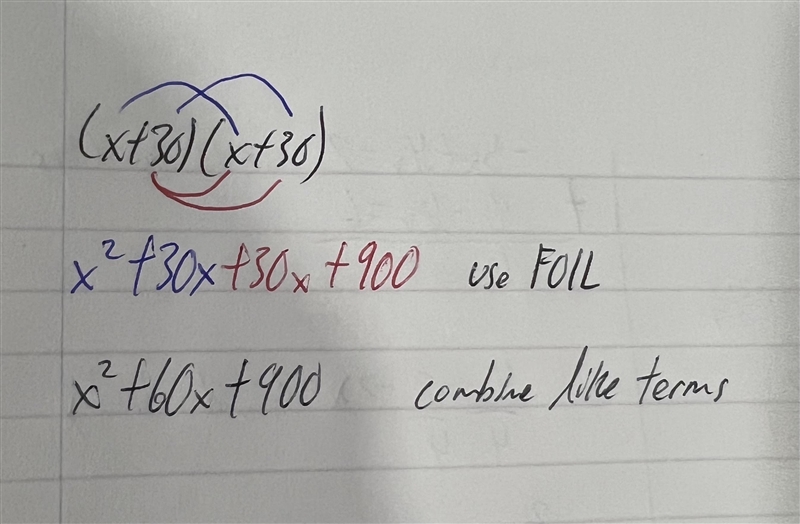 (x+30)(x+30)
x²+30x+30x+900 use FOIL
x²+60x+900 combine like terms